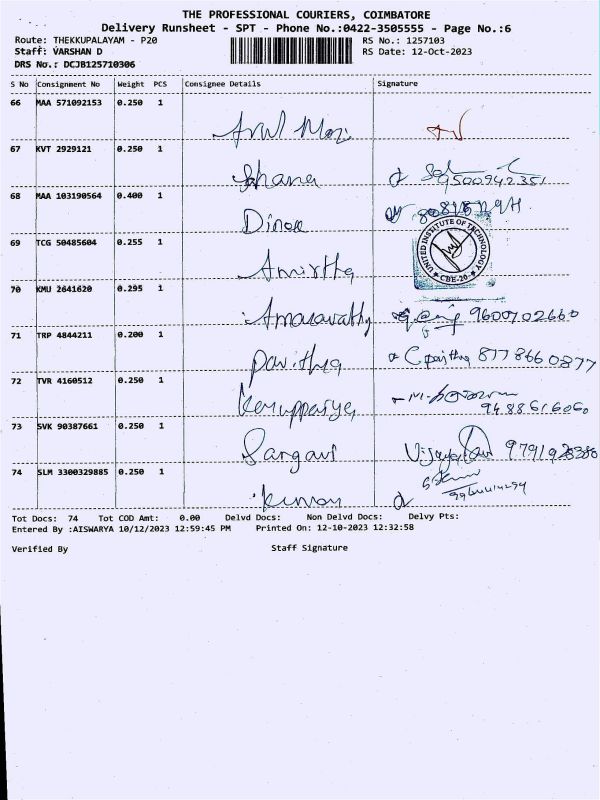 THE PROFESSIONAL COURIERS, COIMBATORE
Delivery Runsheet - SPT - Phone No.:0422-3505555 - Page No.:6
Route: THEKKUPALAYAM - P20 RS No.: 1257103
Staff: VARSHAN D RS Date: 12-Oct-2023
DRS No.: DCJB125710306
S No Consignment No Weight PCS Consignee Details Signature
66 MAA 571092153 0.250 1
Arul Mozi
67 KVT 2929121 0.250 1
9500942351
68 MAA 103190564 0.400 1
69 TCG 50485604 0.255 1
UNITED INSTITUTE OF TECHNOLOGY
CBE-20
Amirtha
70 KMU 2641620 0.295 1
Amaravathy 9600702660
71 TRP 4844211 0.200 1
Pavithra 8778660877
72 TVR 4160512 0.250 1
9488616060
73 SVK 90387661 0.250 1
Sargavi
74 SLM 3300329885 0.250 1
Tot Docs: 74 Tot COD Amt: 0.00 Delvd Docs: Non Delvd Docs: Delvy Pts:
Entered By :AISWARYA 10/12/2023 12:59:45 PM Printed On: 12-10-2023 12:32:58
Verified By Staff Signature